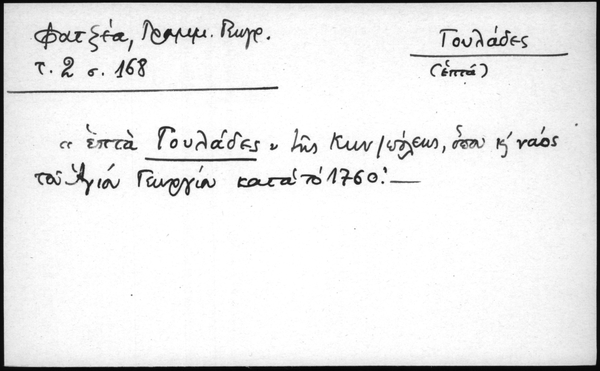 Φατζέα, Γραμμ. Πωγρ.
τ. 2 σ. 168
Γουλάδες
(ἑπτά)
« ἑπτὰ Γουλάδες » τῆς Κων/πόλεως, ὅπου κ' ναός
τοῦ Ἁγίου Γεωργίου κατὰ τὸ 1760.—